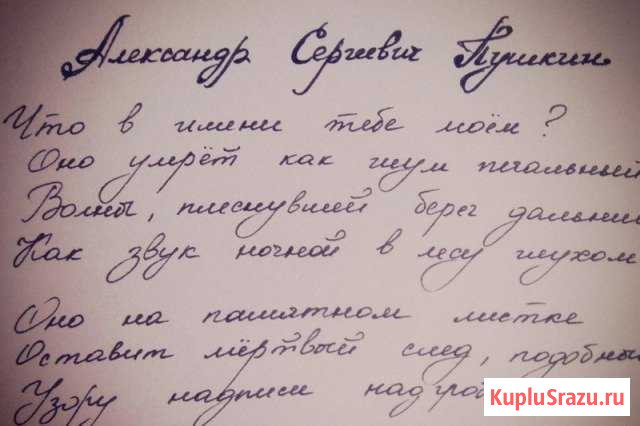 Александр Сергиевич Пушкин
Что в имени тебе моём?
Оно умрёт как шум печальный
Волны, плеснувшей берег дальний
Как звук ночной в лесу глухом
Оно на памятном листке
Оставит мёртвый след, подобный
Узору надписи надгроб
KupluSrazu.ru